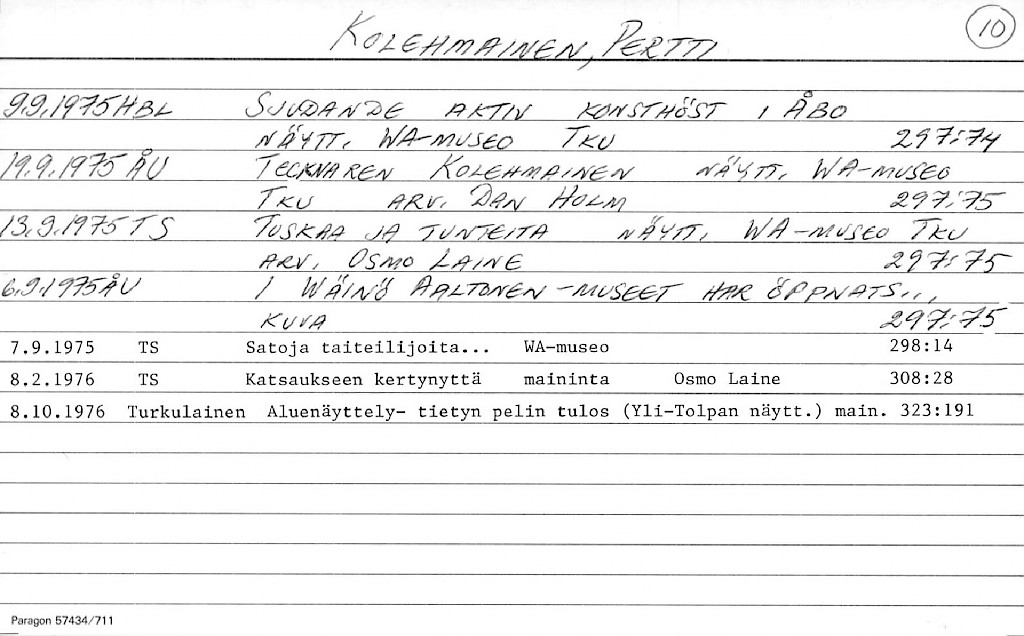 KOLEHMAINEN, PERTTI
10
9.9.1975 HBL SJUDANDE AKTIV KONSTHÖST I ÅBO
NÄYTT. WA-MUSEO TKU 297:74
19.9.1975 ÅU TECKNAREN KOLEHMAINEN NÄYTT. WA-MUSEO
TKU ARV. DAN HOLM 297:75
13.9.1975 TS TUSKAA JA TUNTEITA NÄYTT. WA-MUSEO TKU
ARV. OSMO LAINE 297:75
6.9.1975 ÅU I WÄINÖ AALTONEN-MUSEET HAR ÖPPNATS...
KUVA 297:75
7.9.1975 TS Satoja taiteilijoita... WA-museo 298:14
8.2.1976 TS Katsaukseen kertynyttä maininta Osmo Laine 308:28
8.10.1976 Turkulainen Aluenäyttely- tietyn pelin tulos (Yli-Tolpan näytt.) main. 323:191
Paragon 57434/711